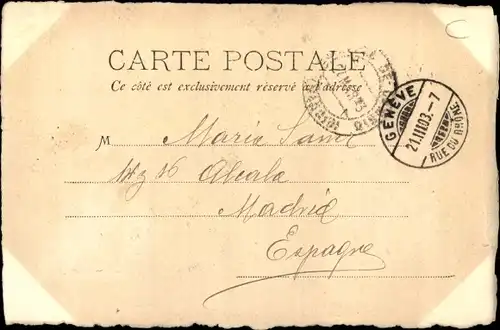 C
CARTE POSTALE
Ce côté est exclusivement réservé à l'adresse
GENÈVE
21.III.03.-7
RUE DU RHÔNE
M Maria
16 Alcala
Madrid
Espagne